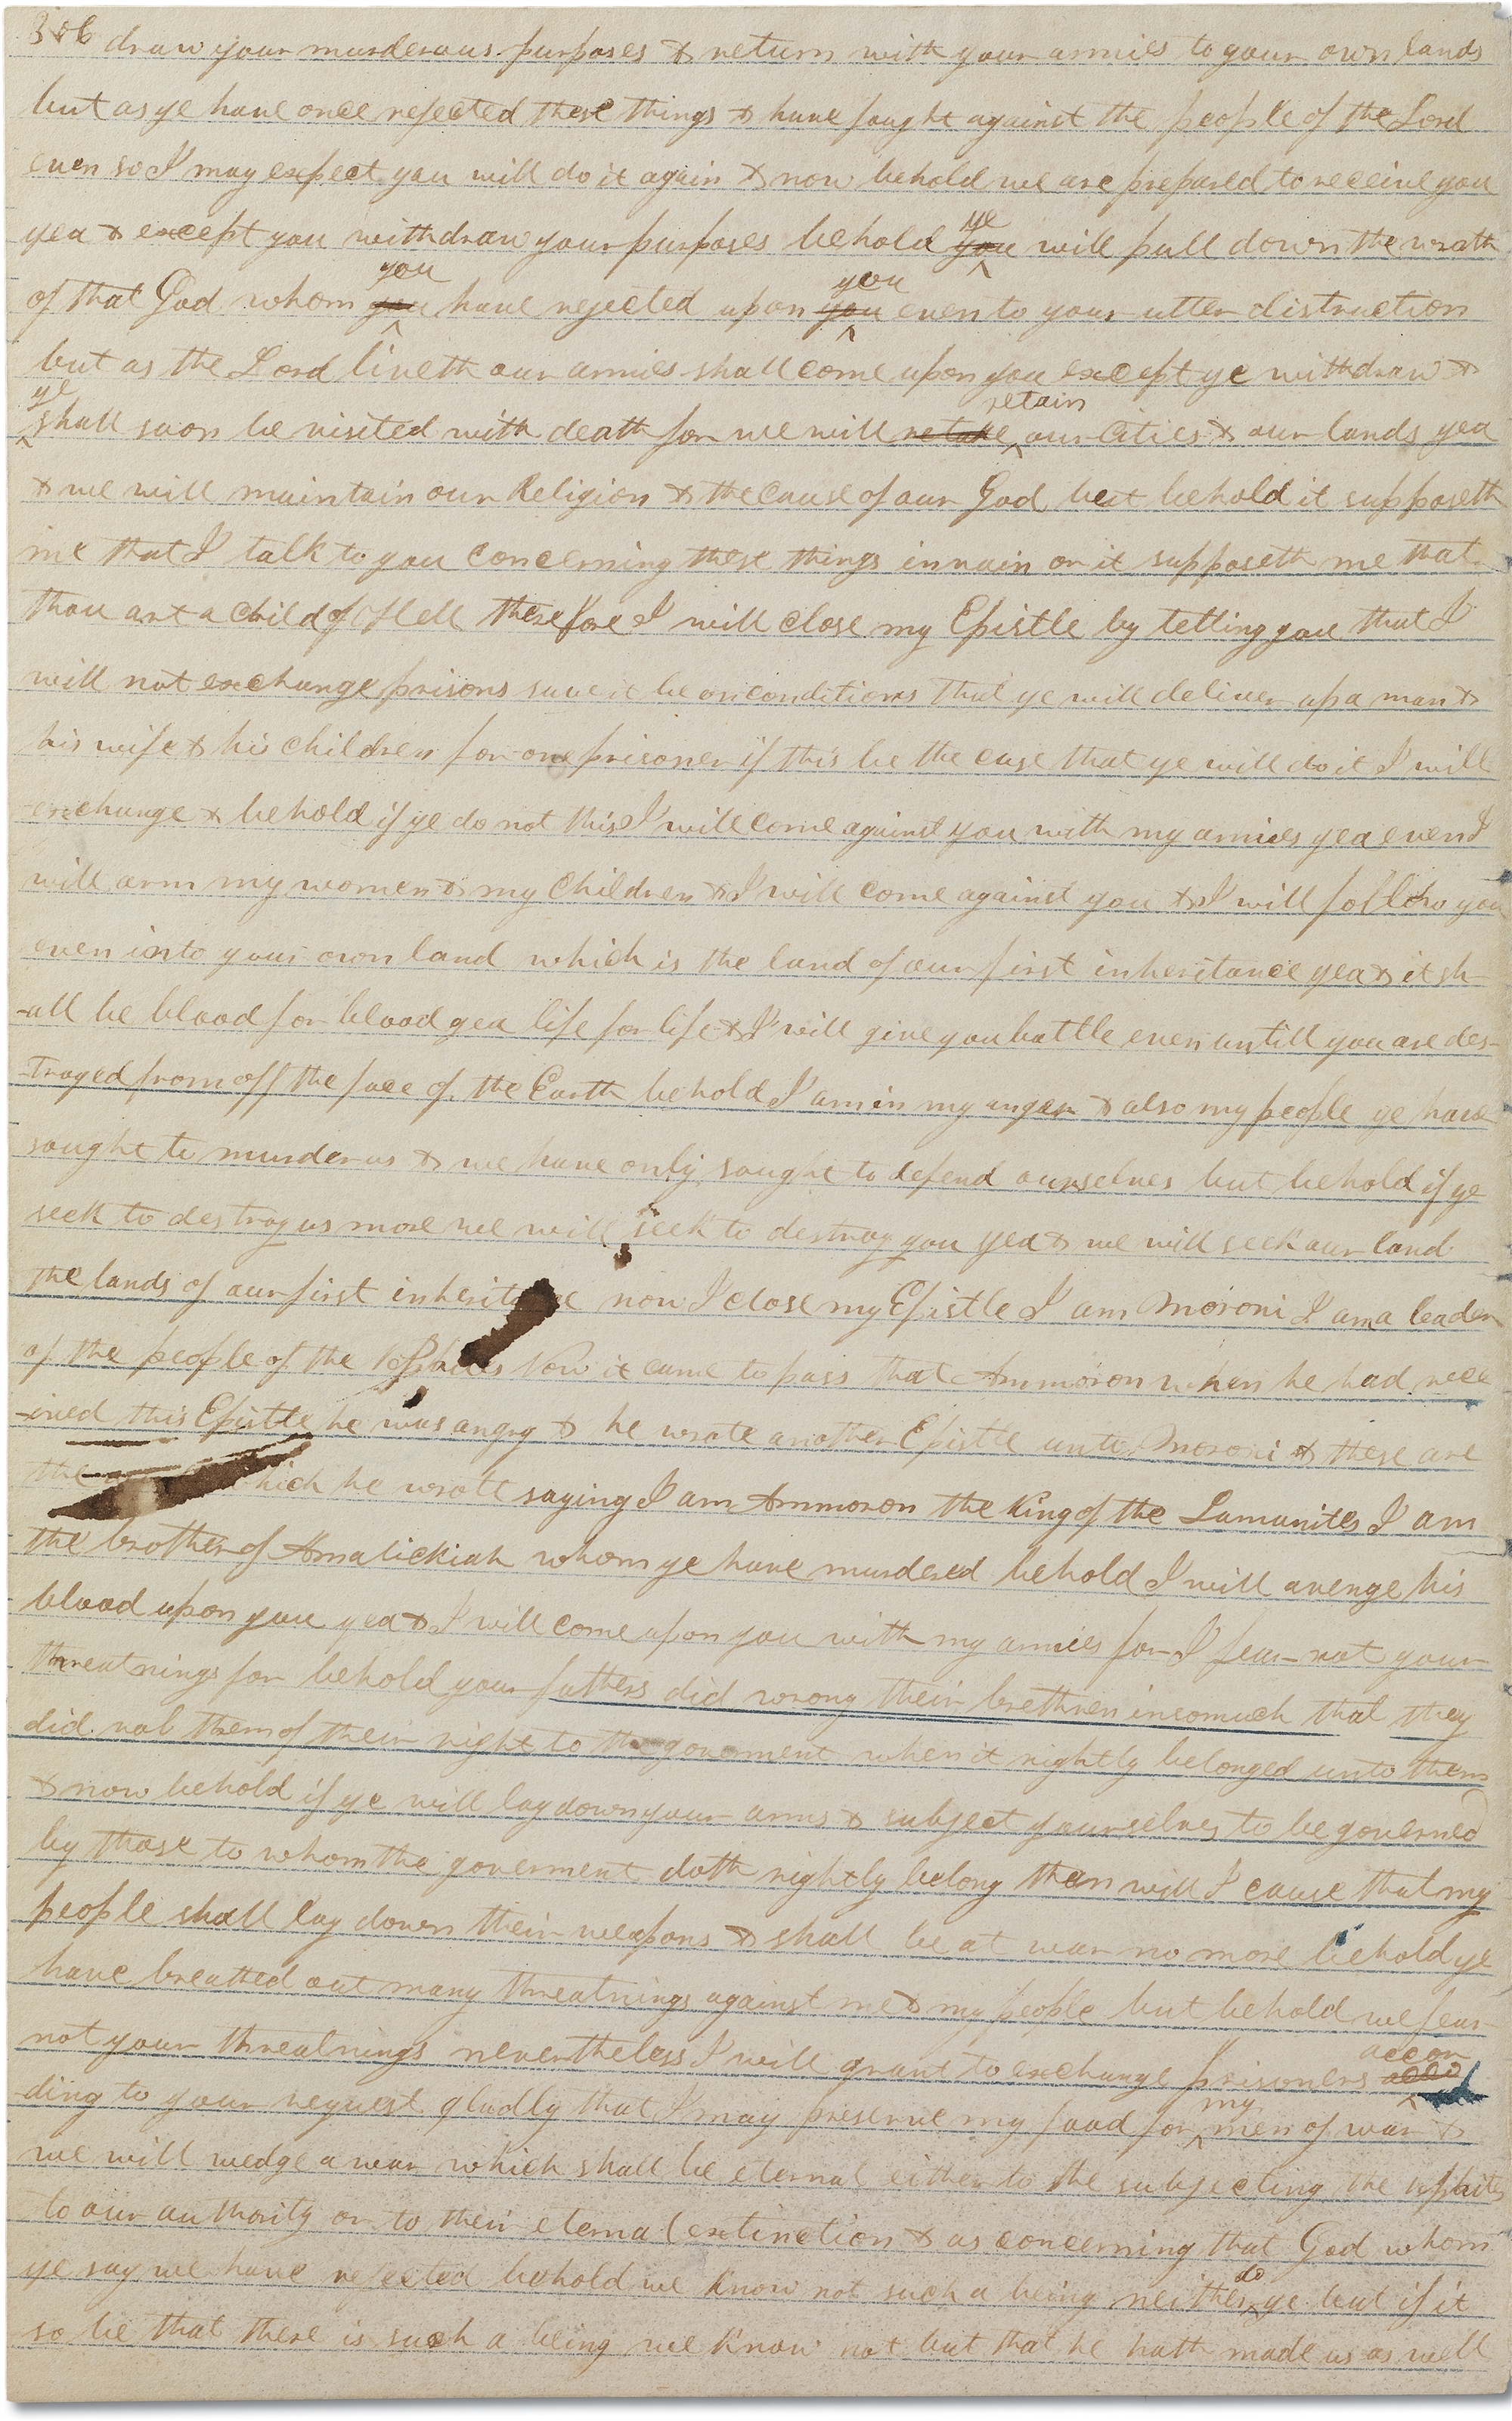 306 draw your murderous purposes & return with your armies to your own lands
but as ye have once rejected these things & have faught against the people of the Lord
even so I may expect you will do it again & now behold we are prepared to receive you
yea & except you withdraw your purposes behold you ye will pull down the wrath
of that God whom you you have rejected upon you you even to your utter distruction
but as the Lord liveth our armies shall come upon you except ye withdraw &
ye shall soon be visited with death for we will retake retain our cities & our lands yea
& we will maintain our Religion & the cause of our God but behold it supposeth
me that I talk to you concerning these things in vain or it supposeth me that
thou art a child of Hell therefore I will close my Epistle by telling you that I
will not exchange prisons save it be on conditions that ye will deliver up a man &
his wife & his children for one prisoner if this be the case that ye will do it I will
exchange & behold if ye do not this I will come against you with my armies yea even I
will arm my women & my children & I will come against you & I will follow you
even into your own land which is the land of our first inheritance yea & it sh-
-all be blood for blood yea life for life & I will give you battle even untill you are des-
-troyed from off the face of the Earth behold I am in my anger & also my people ye have
saught to murder us & we have only saught to defend ourselves but behold if ye
seek to destroy us more we will seek to destroy you yea & we will seek our land
the lands of our first inheritance now I close my Epistle I am Moroni I am a leader
of the people of the Nephites Now it came to pass that Ammoron when he had rece
-ived this Epistle he was angry & he wrote another Epistle unto Moroni & these are
the which he wrote saying I am Ammoron the King of the Lamanites I am
the brother of Amalickiah whom ye have murdered behold I will avenge his
blood upon you yea & I will come upon you with my armies for I fear not your
threatnings for behold your fathers did wrong their brethren insomuch that they
did rob them of their right to the goverment when it rightly belonged unto them
& now behold if ye will lay down your arms & subject yourselves to be governed
by those to whom the goverment doth rightly belong then will I cause that my
people shall lay down their weapons & shall be at war no more behold ye
have breathed out many threatnings against me & my people but behold we fear
not your threatnings nevertheless I will grant to exchange prisoners accor
-ding to your request gladly that I may preserve my food for my men of war &
we will wedge a war which shall be eternal either to the subjecting the Nephites
to our authority or to their eternal extinction & as concerning that God whom
ye say we have rejected behold we know not such a being neither do ye but if it
so be that there is such a being we know not but that he hath made us as well